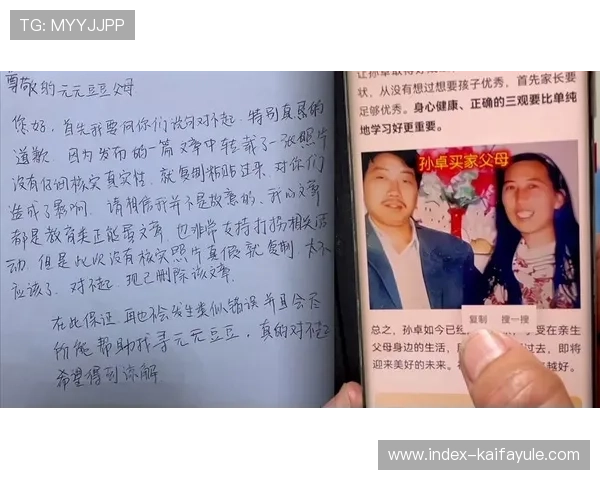 TG: MYYJJPP
尊敬的元元豆豆父母
您好，首先我要向你们说句对不起，特别真恳的
道歉，因为发布的一篇文章中转载了一张照片
没有仔细核实真实性，就复制粘贴过来，对你们
造成了影响，请相信我并不是故意的，我的文章
都是教育类正能量文章，也非常支持打拐相关活
动，但是此次没有核实照片真假就复制，太不
应该了，对不起，现已删除该文章。
在此保证，再也不会发生类似错误并且会尽
所能帮助找寻元元豆豆，真的对不起
希望得到谅解
让孙卓取得好成
状，从没有想过想要孩子优秀，首先家长要
足够优秀。身心健康、正确的三观要比单纯
地学习好更重要。
孙卓买家父母
复制 搜一搜
总之，孙卓如今已经 享受在亲生
父母身边的生活， 过去，即将
迎来美好的未来。 越好。
www.index-kaifayule.com